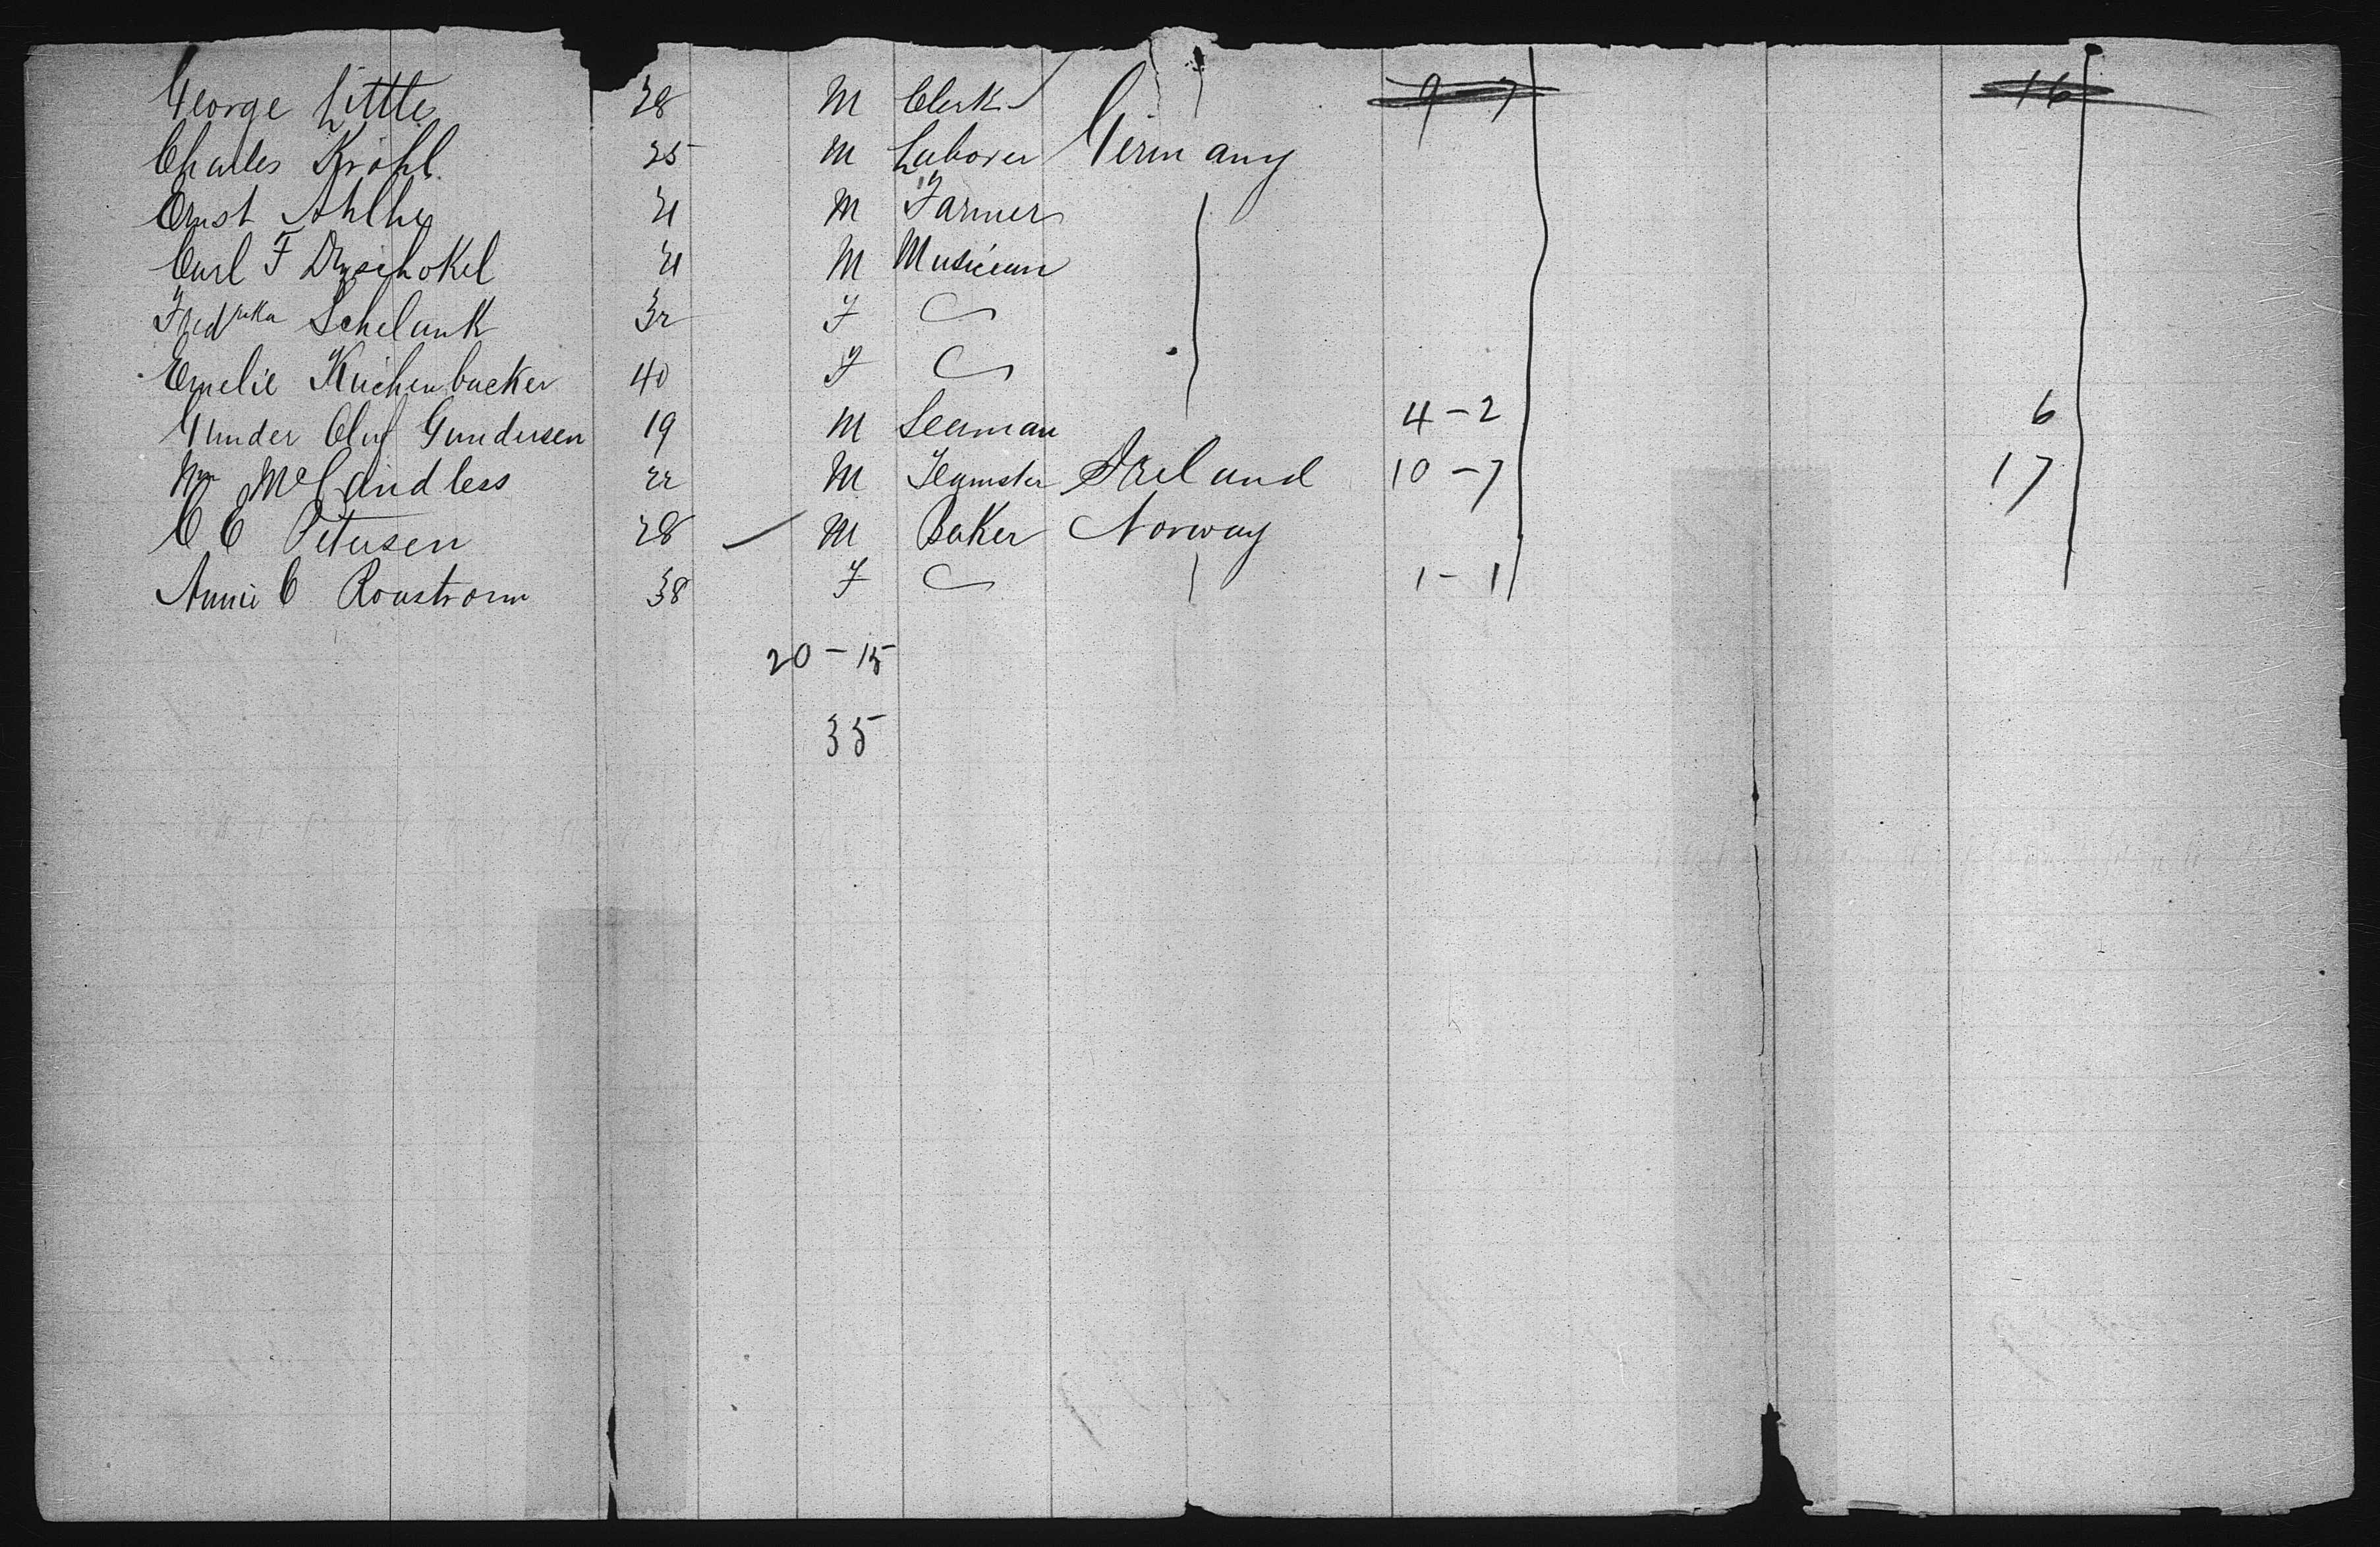 George Little 28 M Clerk 9 - 7 16
Charles Krohl 25 M Laborer Germany
Ernst Ahlhe 21 M Farmer
Carl F 21 M Musician
Fredrika Schelank 32 F
Emelie Kuchenbacker 40 F
Gunder Oluf Gundersen 19 M Seaman 4 - 2 6
Wm McCandless 22 M Teamster Ireland 10 - 7 17
C C Petersen 28 M Baker Norway
Annie C Ronstrom 38 F 1 - 1
20 - 15
35